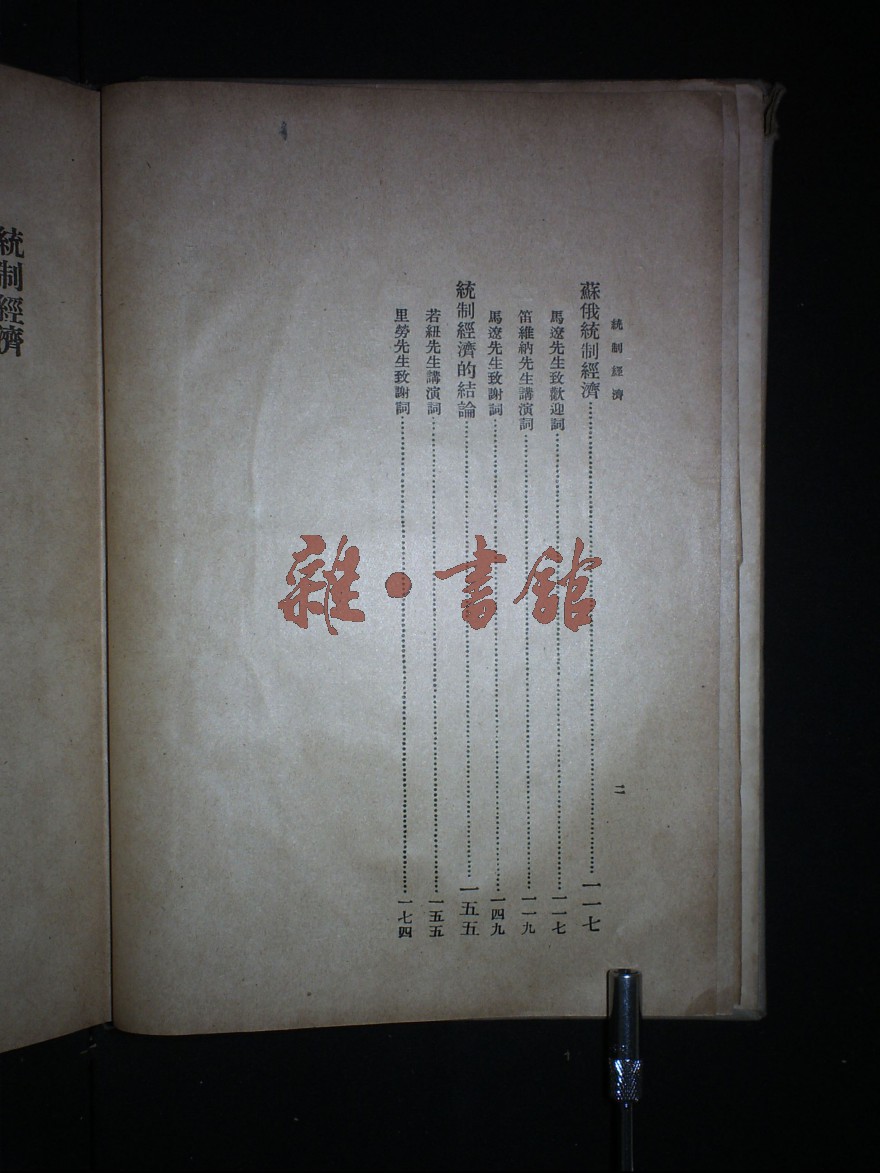 統制經濟
二
蘇俄統制經濟……一一七
馬遼先生致歡迎詞……一一七
笛維納先生講演詞……一一九
馬遼先生致謝詞……一四九
統制經濟的結論……一五五
若紐先生講演詞……一五五
里勞先生致謝詞……一七四
統制經濟
雜·書館